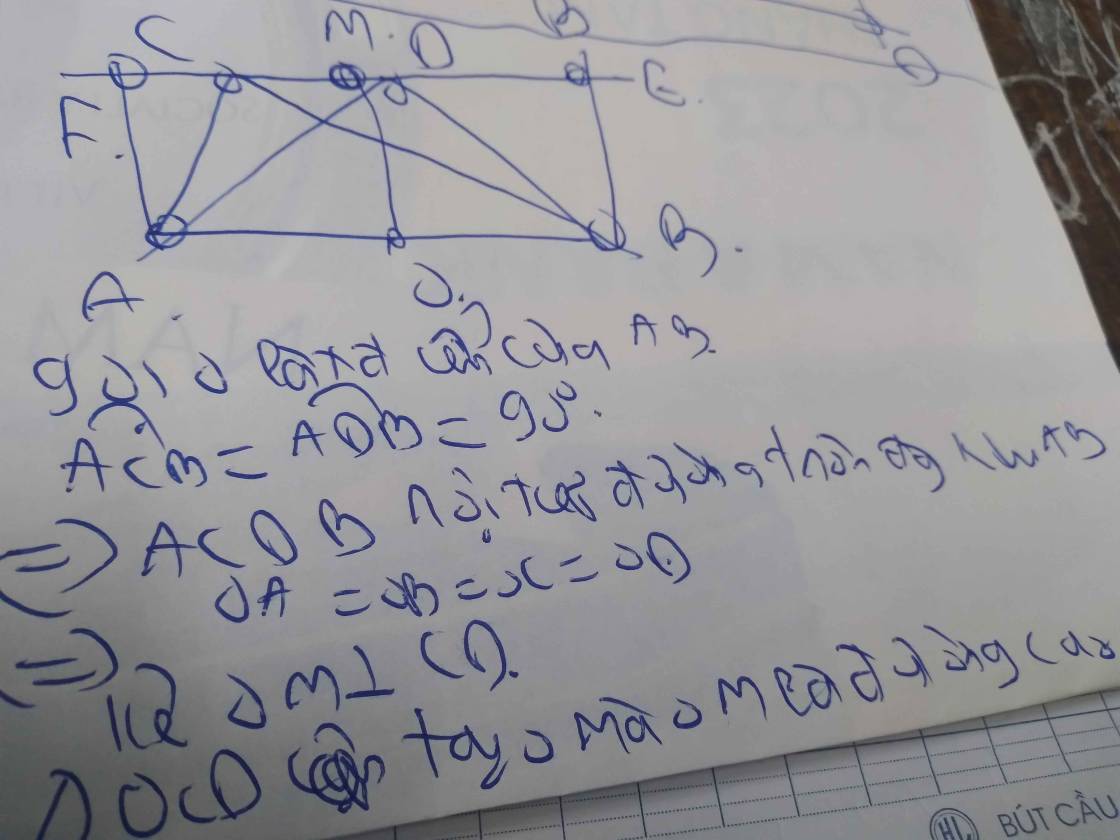 C M. D B D
F. E.
A. O. B.
gọi O là trđ của AB
ACB = ADB = 90°.
=) ACDB nội tiếp đường tròn đg kính AB
=) OA = OB = OC = OD
kẻ OM ⊥ CD.
Δ OCD cân tại O mà OM là đường cao
BÚT CẦU
HL